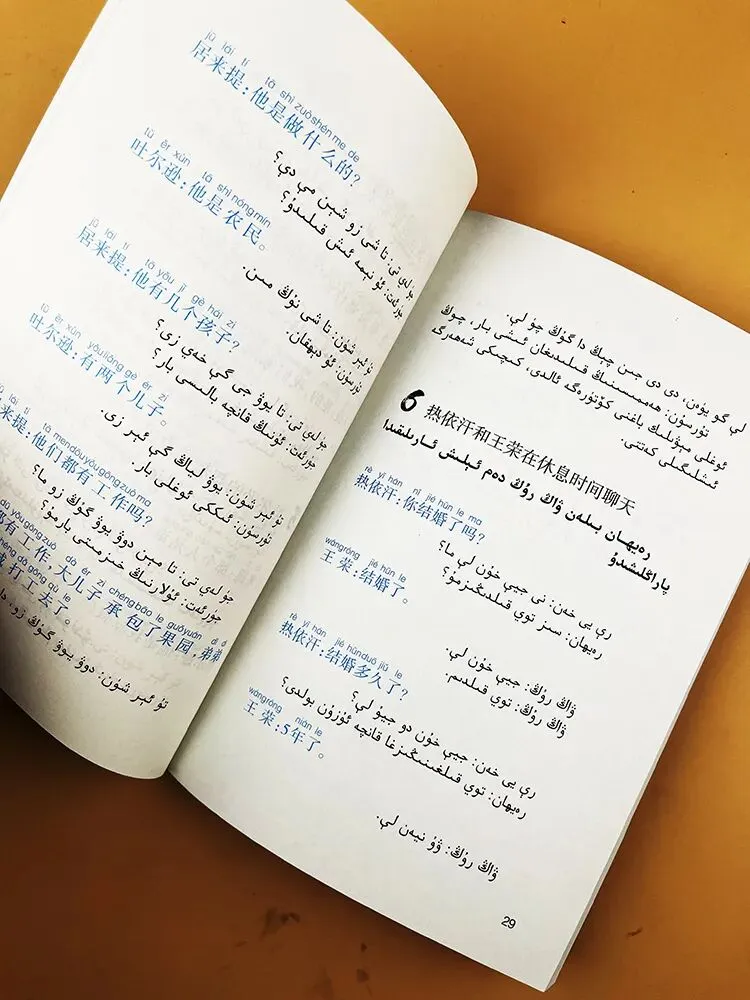 jū lái tí tā shì zuò shén me de
居来提：他是做什么的？
جۈلەي تى: تا شى زو شېن مې دې؟
جۈرئەت: ئۇ نېمە ئىش قىلىدۇ؟
tǔ ěr xùn tā shì nóng mín
吐尔逊：他是农民。
تۇ ئېر شۈن: تا شى نۇڭ مىن.
تۇرسۇن: ئۇ دېھقان.
jū lái tí tā yǒu jǐ gè hái zi
居来提：他有几个孩子？
جۈلەي تى: تا يوۋ جى گې خەي زى؟
جۈرئەت: ئۇنىڭ قانچە بالىسى بار؟
tǔ ěr xùn yǒu liǎng gè ér zi
吐尔逊：有两个儿子。
تۇ ئېر شۈن: يوۋ لياڭ گې ئېر زى.
تۇرسۇن: ئىككى ئوغلى بار.
lái tí tā men dōu yǒu gōng zuò ma
来提：他们都有工作吗？
جۈلەي تى: تا مېن دوۋ يوۋ گۇڭ زو ما؟
جۈرئەت: ئۇلارنىڭ خىزمىتى بارمۇ؟
dōu yǒu gōng zuò dà ér zi chéng bāo le guǒ yuán dì di
都有工作，大儿子承包了果园，弟弟
chéng dǎ gōng qù le
城打工去了。
تۇ ئېر شۈن: دوۋ يوۋ گۇڭ زو، دا
لې گو يۈەن، دى دى جىن چېڭ دا گۇڭ چۈ لې.
تۇرسۇن: ھەممىسىنىڭ قىلىدىغان ئىشى بار، چوڭ
ئوغلى مېۋىلىك باغنى كۆتۈرەگە ئالدى، كىچىكى شەھەرگە
ئىشلىگىلى كەتتى.
6 热依汗和王荣在休息时间聊天
رەيھان بىلەن ۋاڭ رۇڭ دەم ئېلىش ئارىلىقىدا
پاراڭلىشىدۇ
rè yī hàn nǐ jié hūn le ma
热依汗：你结婚了吗？
رې يى خەن: نى جيې خۇن لې ما؟
رەيھان: سىز توي قىلدىڭىزمۇ؟
wáng róng jié hūn le
王荣：结婚了。
ۋاڭ رۇڭ: جيې خۇن لې.
ۋاڭ رۇڭ: توي قىلدىم.
rè yī hàn jié hūn duō jiǔ le
热依汗：结婚多久了？
رې يى خەن: جيې خۇن دو جيۇ لې؟
رەيھان: توي قىلغىنىڭىزغا قانچە ئۇزۇن بولدى؟
wáng róng nián le
王荣：5年了。
ۋاڭ رۇڭ: ۋۇ نيەن لې.
29